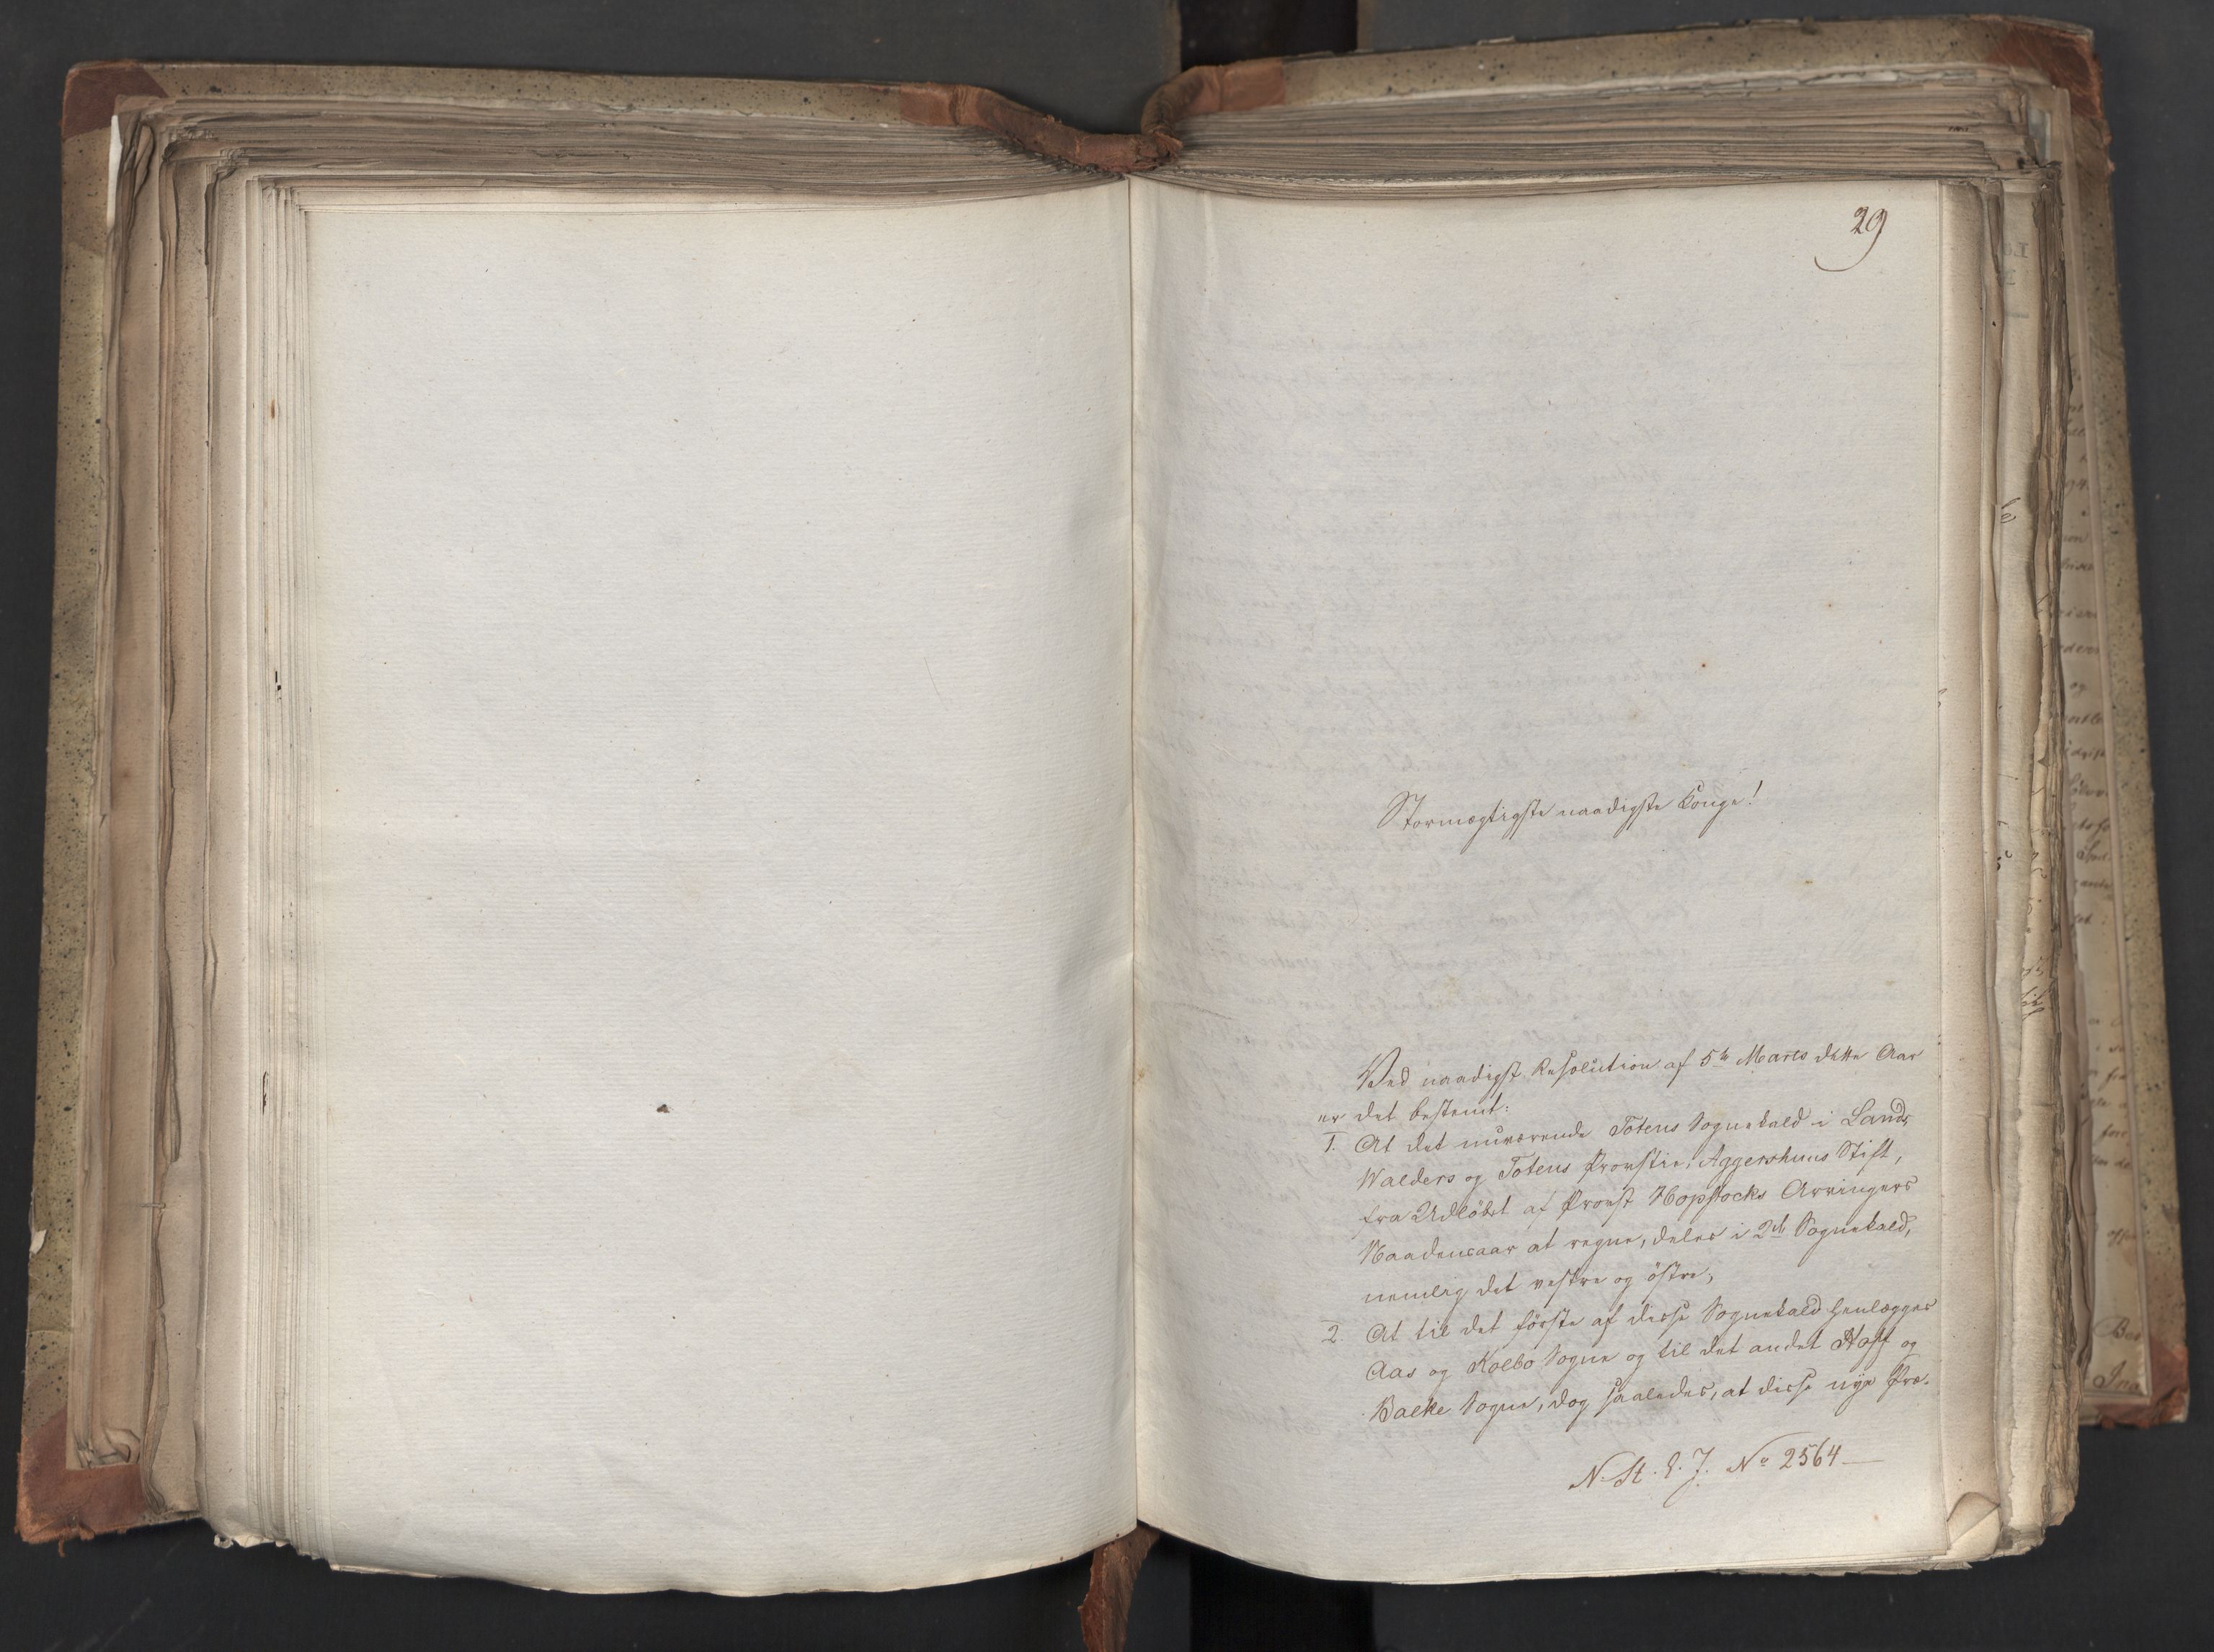 29
Stormægtigste naadigste Konge!
Ved naadigst Resolution af 5te Marts dette Aar
er det bestemt:
1. At det nuværende Totens Sognekald i Lands
Walders og Totens Provstie, Aggershuus Stift,
fra Udløbet af Provst Hopstocks Arvingers
Naadensaar at regne, deles i 2de Sognekald,
nemlig det vestre og östre,
2. At til det förste af disse Sognekald henlægges
Aas og Kolbo Sogne og til det andet Hoff og
Balke Sogne, dog saaledes, at disse nye Præ-
N. St. E. J. No 2564